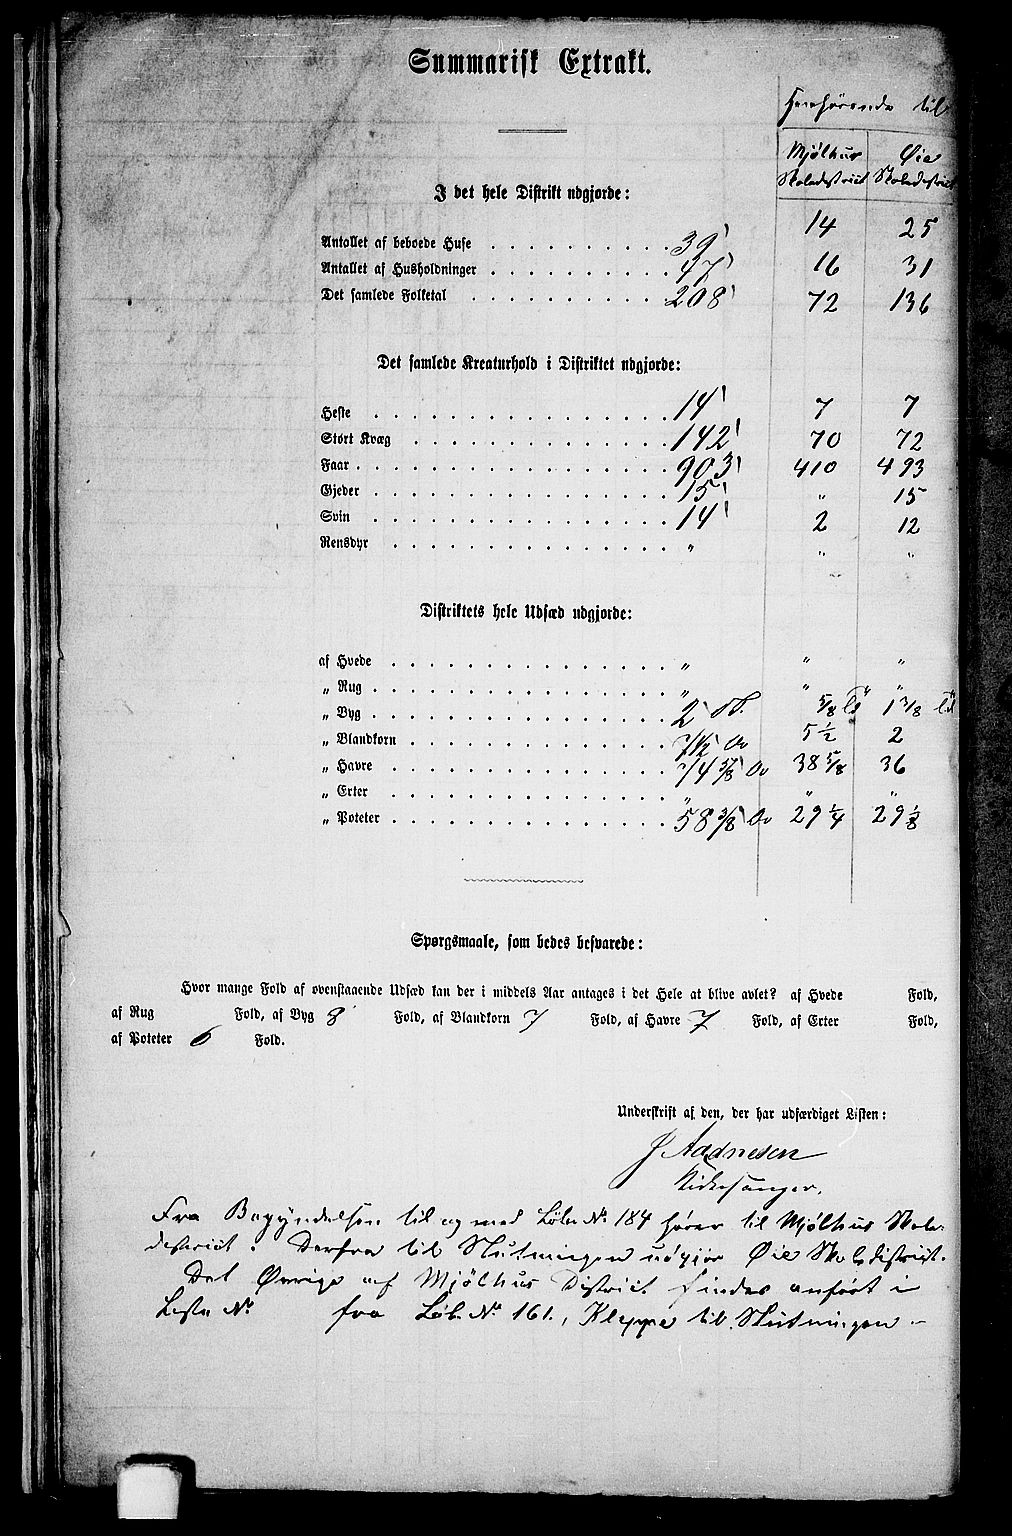 Summarisk Extrakt.
Henhørende til
Mjølhus Skoledistrict Øie Skoledistrict
I det hele Distrikt udgjorde:
Antallet af beboede Huse 39 14 25
Antallet af Husholdninger 47 16 31
Det samlede Folketal 208 72 136
Det samlede Kreaturhold i Distriktet udgjorde:
Heste 14 7 7
Stort Kvæg 142 70 72
Faar 903 410 493
Gjeder 15 " 15
Svin 14 2 12
Rensdyr " " "
Distriktets hele Udsæd udgjorde:
af Hvede " " "
„ Rug " " "
„ Byg 2 5/8 1 3/8
„ Blandkorn 7 1/2 5 1/2 2
„ Havre 74 5/8 38 5/8 36
„ Erter " " "
„ Poteter 58 3/8 29 1/4 29 1/8
Spørgsmaale, som bedes besvarede:
Hvor mange Fold af ovenstaaende Udsæd kan der i middels Aar antages i det Hele at blive avlet? af Hvede Fold,
af Rug Fold, af Byg 8 Fold, af Blandkorn 7 Fold, af Havre 7 Fold, af Erter Fold,
af Poteter 6 Fold.
Underskrift af den, der har udfærdiget Listen:
J Aadnesen
Kirkesanger.
Fra Begyndelsen til og med Løbe No. 184 hører til Mjølhus Skole-
district. Derfra til Slutningen udgjør Øie Skoledistrict.
Det Øvrige af Mjølhus District findes anført i
Liste No. fra Løb. No. 161., Kleppe til Slutningen.